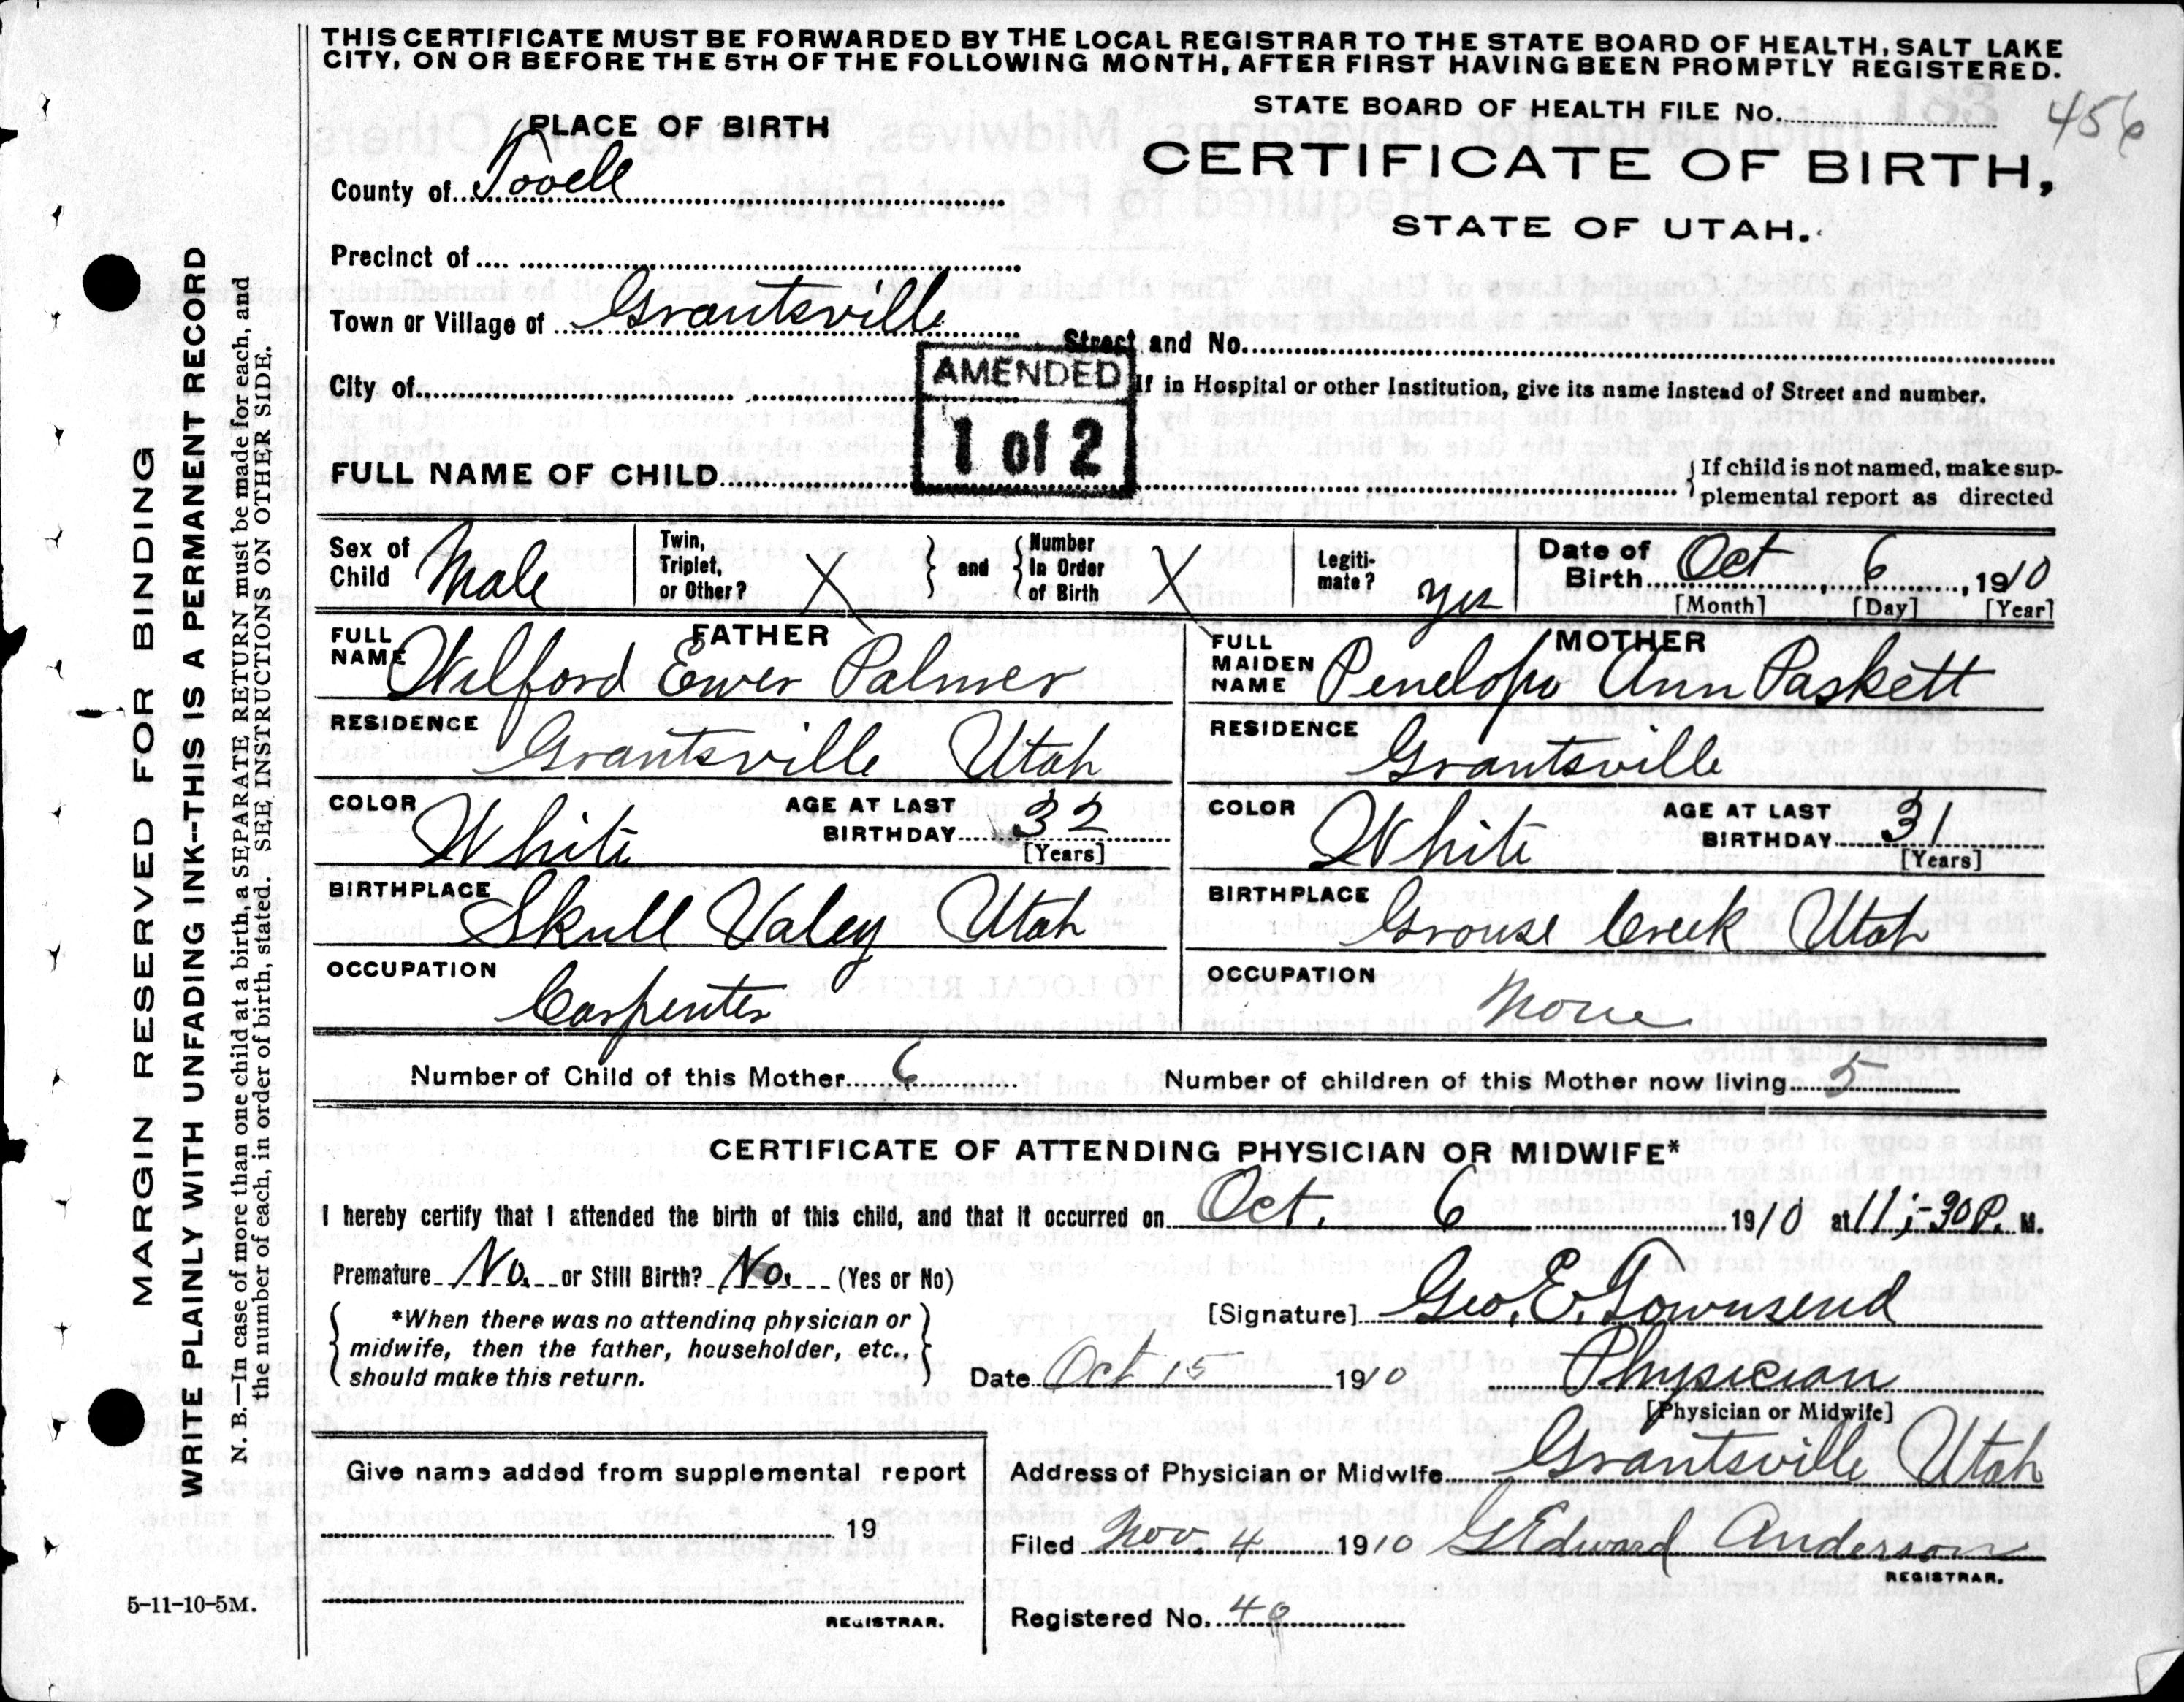 THIS CERTIFICATE MUST BE FORWARDED BY THE LOCAL REGISTRAR TO THE STATE BOARD OF HEALTH, SALT LAKE
CITY, ON OR BEFORE THE 5TH OF THE FOLLOWING MONTH, AFTER FIRST HAVING BEEN PROMPTLY REGISTERED.
STATE BOARD OF HEALTH FILE No. 456
PLACE OF BIRTH
CERTIFICATE OF BIRTH,
STATE OF UTAH.
County of Tooele
Precinct of
Town or Village of Grantsville
Street and No.
City of
AMENDED
If in Hospital or other Institution, give its name instead of Street and number.
1 of 2
FULL NAME OF CHILD
If child is not named, make sup-
plemental report as directed
Sex of Child Male
Twin, Triplet, or Other? X
and
Number In Order of Birth X
Legiti-mate? Yes
Date of Birth Oct 6, 1910
[Month] [Day] [Year]
FATHER
FULL NAME Wilford Ewer Palmer
MOTHER
FULL MAIDEN NAME Penelope Ann Paskett
RESIDENCE Grantsville Utah
RESIDENCE Grantsville
COLOR White AGE AT LAST BIRTHDAY 32 [Years]
COLOR White AGE AT LAST BIRTHDAY 31 [Years]
BIRTHPLACE Skull Valey Utah
BIRTHPLACE Grouse Creek Utah
OCCUPATION Carpenter
OCCUPATION None
Number of Child of this Mother 6 Number of children of this Mother now living 5
CERTIFICATE OF ATTENDING PHYSICIAN OR MIDWIFE*
I hereby certify that I attended the birth of this child, and that it occurred on Oct. 6 1910 at 11:30 P. M.
Premature No. or Still Birth? No. (Yes or No)
*When there was no attending physician or
midwife, then the father, householder, etc.,
should make this return.
[Signature] Geo. E. Townsend
Date Oct 15 1910 Physician
[Physician or Midwife]
Give name added from supplemental report
19
REGISTRAR.
Address of Physician or Midwife Grantsville Utah
Filed Nov. 4 1910 G Edward Anderson
REGISTRAR.
Registered No. 40
5-11-10-5M.
MARGIN RESERVED FOR BINDING
WRITE PLAINLY WITH UNFADING INK--THIS IS A PERMANENT RECORD
N. B.—In case of more than one child at a birth, a SEPARATE RETURN must be made for each, and
the number of each, in order of birth, stated. SEE INSTRUCTIONS ON OTHER SIDE.